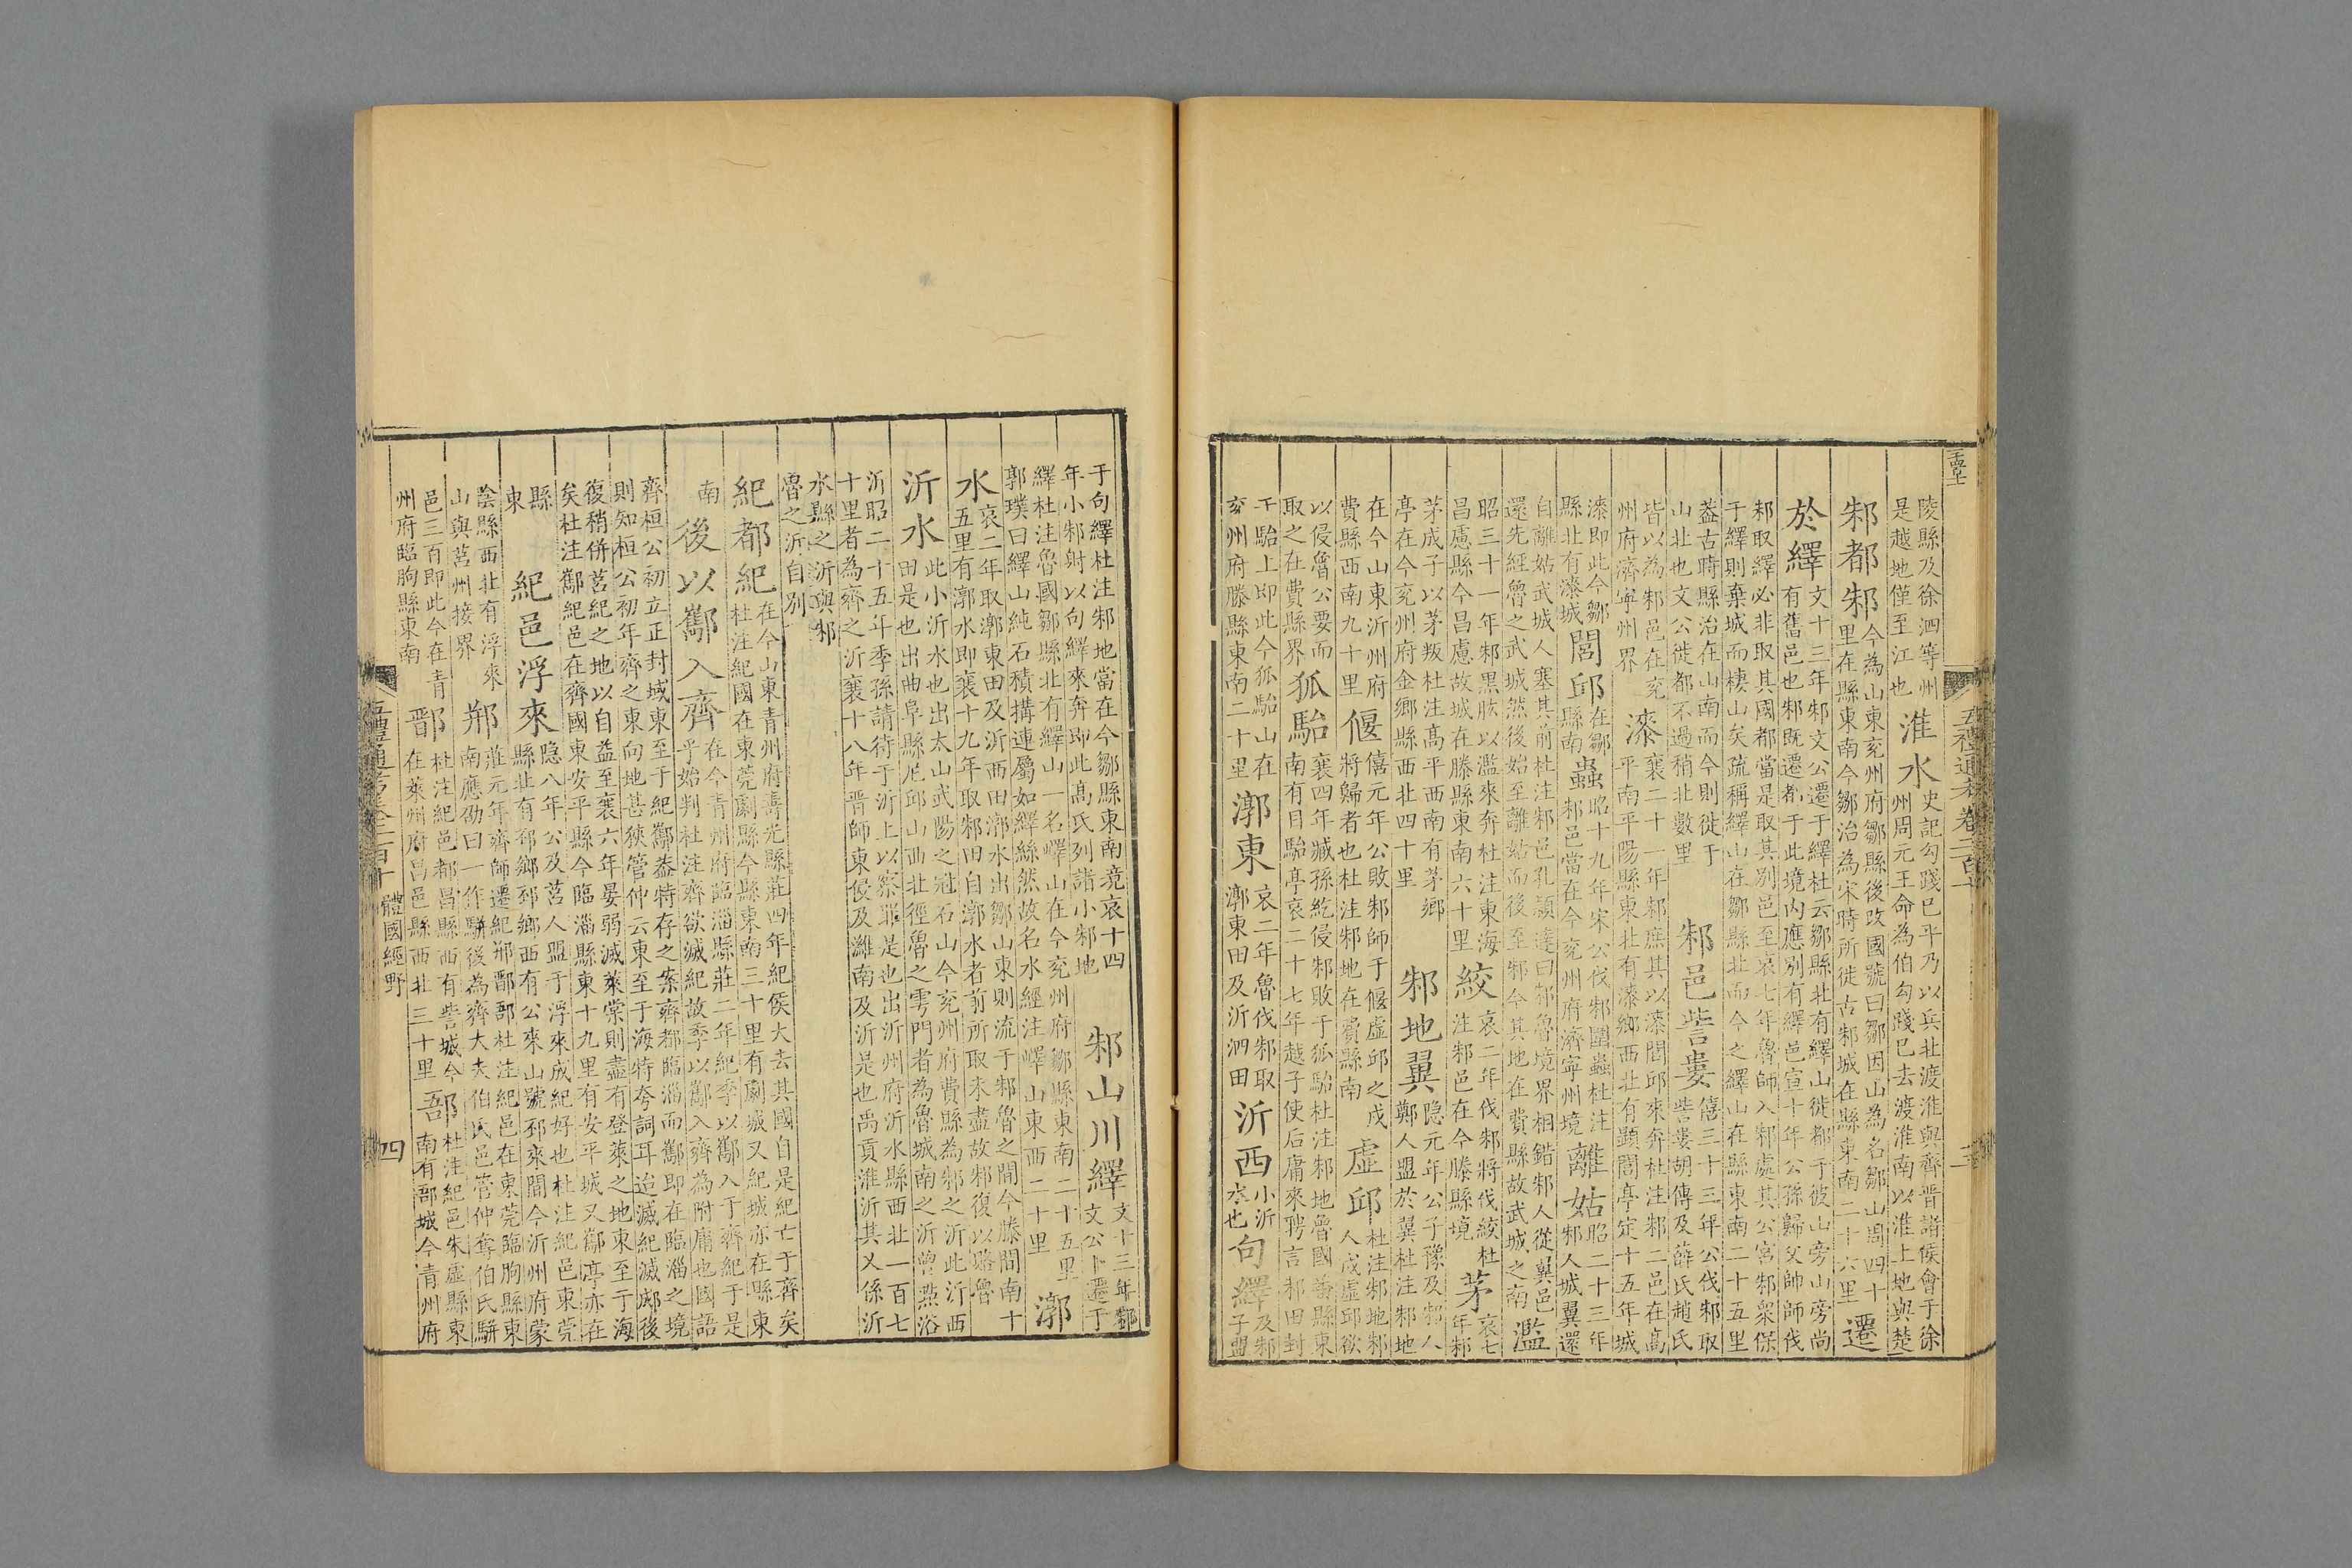 五禮通考卷二百十
三
陵縣及徐泗等州
是越地僅至江也
淮水
史記勾踐已平乃以兵北渡淮與齊晋諸侯會于徐
州周元王命為伯勾踐已去渡淮南以淮上地與楚
邾都邾
今為山東兖州府鄒縣後改國號曰鄒因山為名鄒山周四十
里在縣東南今鄒治為宋時所徙古邾城在縣東南二十六里
遷
於繹
文十三年邾文公遷于繹杜云鄒縣北有繹山徙都于彼山旁山旁尚
有舊邑也邾既遷都于此境内應别有繹邑宣十年公孫歸父帥師伐
邾取繹必非取其國都當是取其别邑至哀七年魯師入邾處其公宮邾衆保
于繹則棄城而棲山矣疏稱繹山在鄒縣北而今之繹山在縣東南二十五里
葢古時縣治在山南而今則徙于
山北也文公徙都不過稍北數里
邾邑訾婁
僖三十三年公伐邾取
訾婁胡傳及薛氏趙氏
皆以為邾邑在兖
州府濟寧州界
漆
襄二十一年邾庶其以漆閭邱來奔杜注邾二邑在高
平南平陽縣東北有漆鄉西北有顯閭亭定十五年城
漆即此今鄒
縣北有漆城
閭邱
在鄒
縣南
蟲
昭十九年宋公伐邾圍蟲杜注
邾邑當在今兖州府濟寧州境
離姑
昭二十三年
邾人城翼還
自離姑武城人塞其前杜注邾邑孔穎達曰邾魯境界相錯邾人從翼邑
還先經魯之武城然後始至離姑而後至邾今其地在費縣故武城之南
濫
昭三十一年邾黑肱以濫來奔杜注東海
昌慮縣今昌慮故城在滕縣東南六十里
絞
哀二年伐邾將伐絞杜
注邾邑在今滕縣境
茅
哀七
年邾
茅成子以茅叛杜注高平西南有茅鄉
亭在今兖州府金鄉縣西北四十里
邾地翼
隐元年公子豫及邾人
鄭人盟於翼杜注邾地
在今山東沂州府
費縣西南九十里
偃
僖元年公敗邾師于偃虛邱之戍
將歸者也杜注邾地在費縣南
虛邱
杜注邾地邾
人戍虛邱欲
以侵魯公要而
取之在費縣界
狐駘
襄四年臧孫紇侵邾敗于狐駘杜注邾地魯國蕃縣東
南有目駘亭哀二十七年越子使后庸來聘言邾田封
于駘上即此今狐駘山在
兖州府滕縣東南二十里
漷東
哀二年魯伐邾取
漷東田及沂泗田
沂西
小沂
水也
句繹
及邾
子盟
于句繹杜注邾地當在今鄒縣東南境哀十四
年小邾射以句繹來奔即此髙氏列諸小邾地
邾山川繹
文十三年邾
文公卜遷于
繹杜注魯國鄒縣北有繹山一名嶧山在今兖州府鄒縣東南二十五里
郭璞曰繹山純石積搆連屬如繹絲然故名水經注嶧山東西二十里
漷
水
哀二年取漷東田及沂西田漷水出鄒山東則流于邾魯之間今滕間南十
五里有漷水即襄十九年取邾田自漷水者前所取未盡故邾復以賂魯
沂水
此小沂水也出太山武陽之冠石山今兖州府費縣為邾之沂此沂西
田是也出曲阜縣尼邱山西北徑魯之雩門者為魯城南之沂曾㸃浴
沂昭二十五年季孫請待于沂上以察罪是也出沂州府沂水縣西北一百七
十里者為齊之沂襄十八年晋師東侵及濰南及沂是也禹貢淮沂其乂係沂
水縣之沂與邾
魯之沂自别
紀都紀
在今山東青州府壽光縣莊四年紀侯大去其國自是紀亡于齊矣
杜注紀國在東莞劇縣今縣東南三十里有劇城又紀城亦在縣東
南
後以酅入齊
在今青州府臨淄縣莊二年紀季以酅入于齊紀于是
乎始判杜注齊欲滅紀故季以酅入齊為附庸也國語
齊桓公初立正封域東至于紀酅葢特存之案齊都臨淄而酅即在臨淄之境
則知桓公初年齊之東向地甚狹管仲云東至于海特夸詞耳迨滅紀滅郕後
復稍併莒紀之地以自益至襄六年晏弱滅萊棠則盡有登萊之地東至于海
矣杜注酅紀邑在齊國東安平縣今臨淄縣東十九里有安平城又酅亭亦在
縣
東
紀邑浮來
隐八年公及莒人盟于浮來成紀好也杜注紀邑東莞
縣北有邳鄉邳鄉西有公來山號邳來間今沂州府蒙
陰縣西北有浮來
山與莒州接界
郱
莊元年齊師遷紀郱鄑郚杜注紀邑在東莞臨朐縣東
南應劭曰一作駢後為齊大夫伯氏邑管仲奪伯氏駢
邑三百即此今在青
州府臨朐縣東南
鄑
杜注紀邑都昌縣西有訾城今
在萊州府昌邑縣西北三十里
郚
杜注紀邑朱虛縣東
南有郚城今青州府
五禮通考卷二百十
體國經野
四